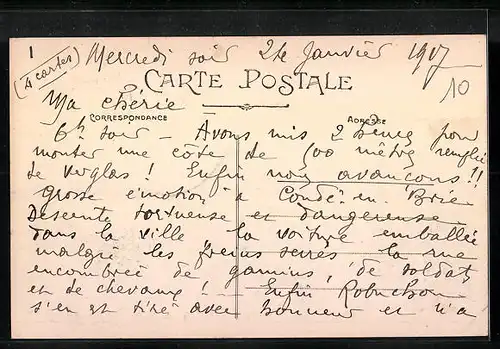 1
(4 cartes)
Mercredi soir 24 Janvier 1917
10
CARTE POSTALE
Ma chérie
CORRESPONDANCE
ADRESSE
6h soir - Avons mis 2 heures pour
monter une côte de 600 mètres remplie
de verglas ! Enfin nous avançons !!
Grosse émotion à Condé-en-Brie
Descente tortueuse et dangereuse
dans la ville la voiture emballée
malgré les freins serrés la rue
encombrée de gamins, de soldats
et de chevaux ! Enfin Robuchon
s'en est tiré avec honneur et n'a